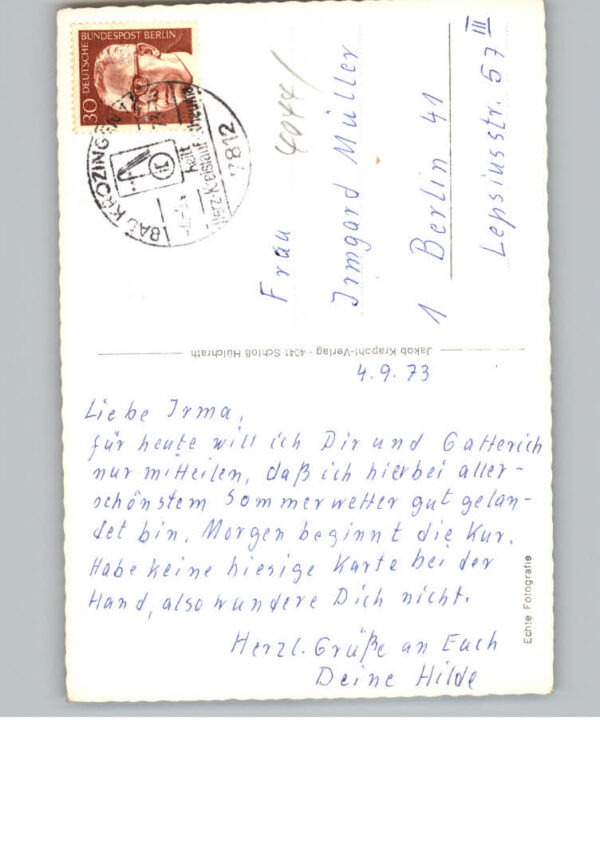 30 DEUTSCHE BUNDESPOST BERLIN
BAD KROZINGEN
7812
Herz-Kreislauf
4044/
Frau
Irmgard Müller
1 Berlin 41
Lepsiusstr. 57 III
Jakob Krapohl-Verlag · 4041 Schloß Hülchrath
4.9.73
Liebe Irma,
für heute will ich Dir und Gatterich
nur mitteilen, daß ich hier bei aller-
schönstem Sommerwetter gut gelan-
det bin. Morgen beginnt die Kur.
Habe keine hiesige Karte bei der
Hand, also wundere Dich nicht.
Herzl. Grüße an Euch
Deine Hilde
Echte Fotografie